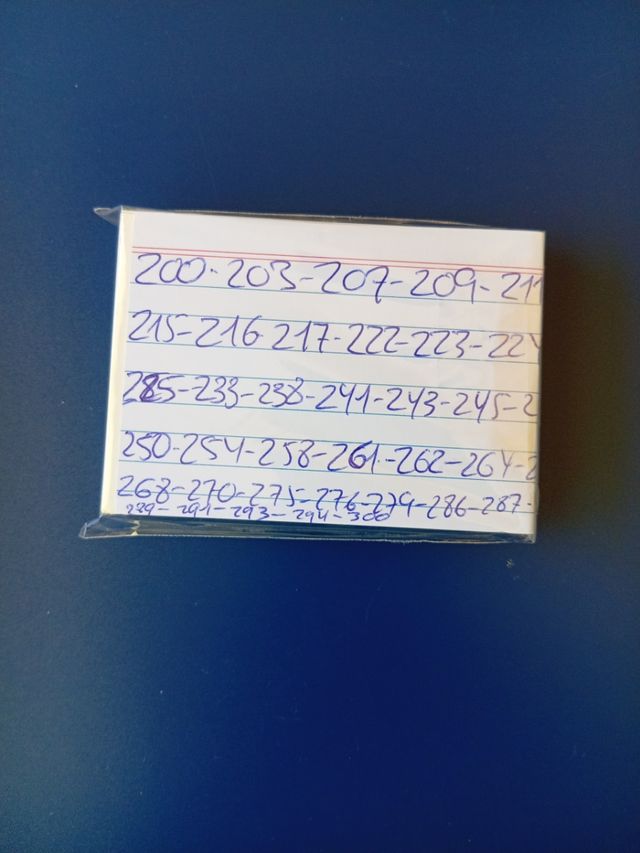 200-203-207-209-211
215-216-217-222-223-224
225-233-238-241-243-245-2
250-254-258-261-262-264-2
268-270-275-276-279-286-287-
289-291-293-294-300